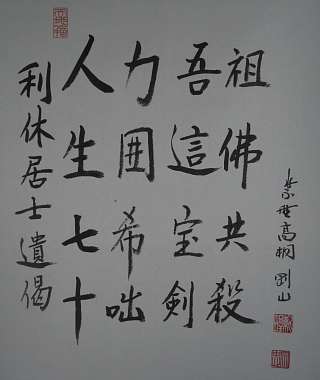 利休居士遺偈
人生七十
力囲希咄
吾這宝剣
祖佛共殺
紫埜高桐 剛山